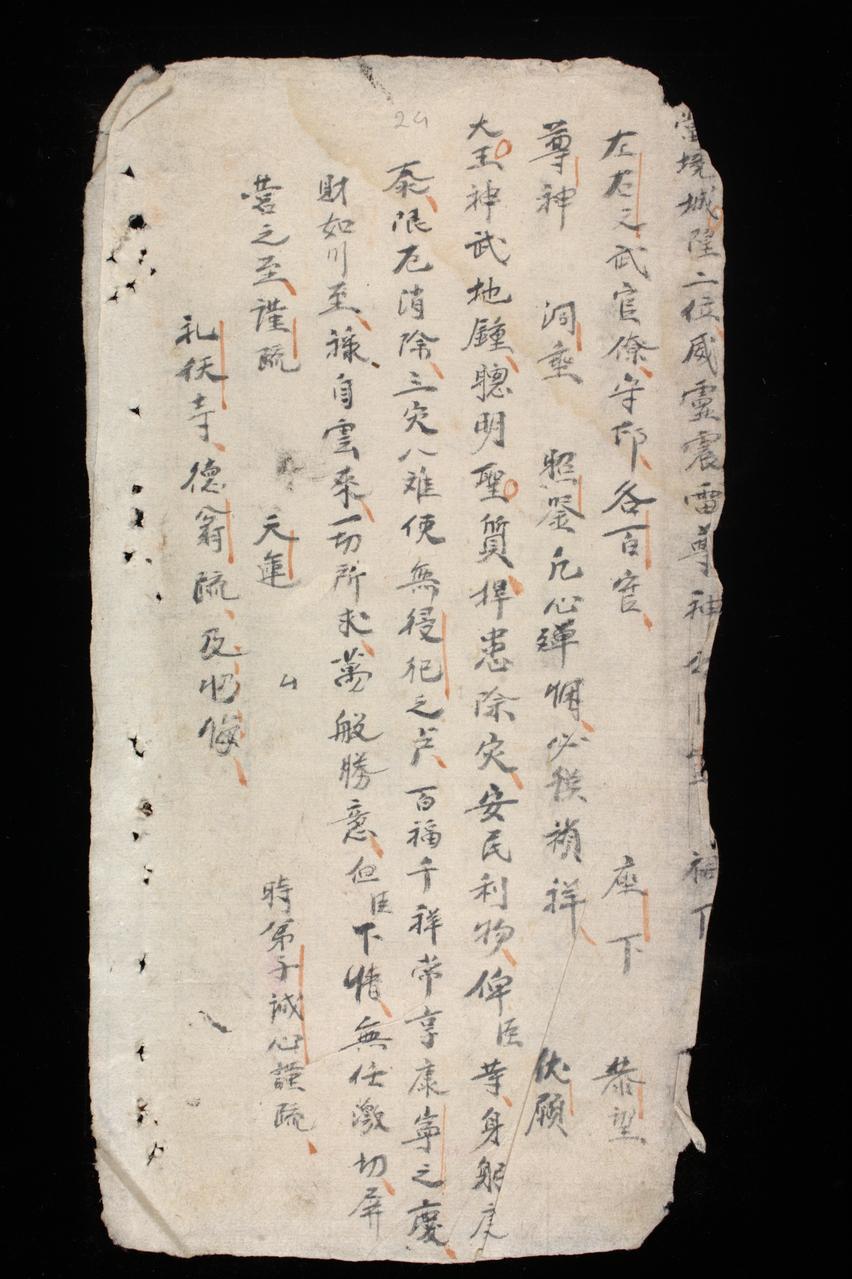 當境城隍二位威靈震雷尊神 祠下
左右文武官僚守邸各百官 座下 恭望
尊神 洞垂 照鑒凡心殫悃必矦禎祥 伏願
大王神武地鍾聰明聖質捍患除灾安民利物俾臣等身躬康
泰限厄消除三灾八难使無侵犯之虞百福千祥常享康寧之慶
財如川至祿自雲來一切所求萬般勝意但臣下情無任激切屏
營之至謹疏 天運 厶 時第子誠心謹疏
礼伏寺德翁疏及懺悔
24